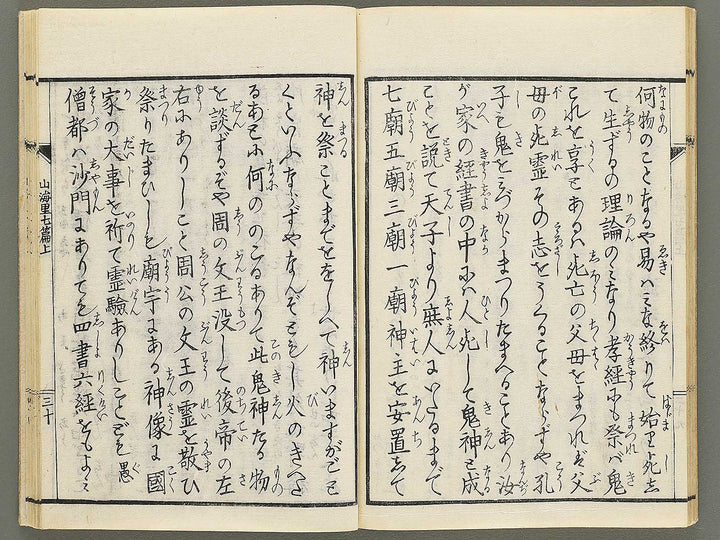 何物のことなるや易ハミな終りて始り死して
生ずるの理論のミなり孝經にも祭バ鬼
これを享とあるハ死亡の父母をまつれバ父
母の死靈その志をうくることならずや孔
子も鬼をミづからまつりたまへることあり汝
が家の經書の中にハ人死して鬼神と成
ことを説て天子より庶人にいたるまで
七廟五廟三廟一廟神主を安置して
神を祭ことまでををしへて神いますがごとく
といふならずやなんぞともし火のきへたる
あとに何のゝこるありて此鬼神たる物
を談ずるぞや周の文王没して後帝の左
右にありしこと周公の文王の靈を敬ひ
祭りたまひしも廟宇にある神像に國
家の大事を祈て靈驗ありしことども愚
僧都ハ沙門にありても四書六經をも
山海里七篇上
三十